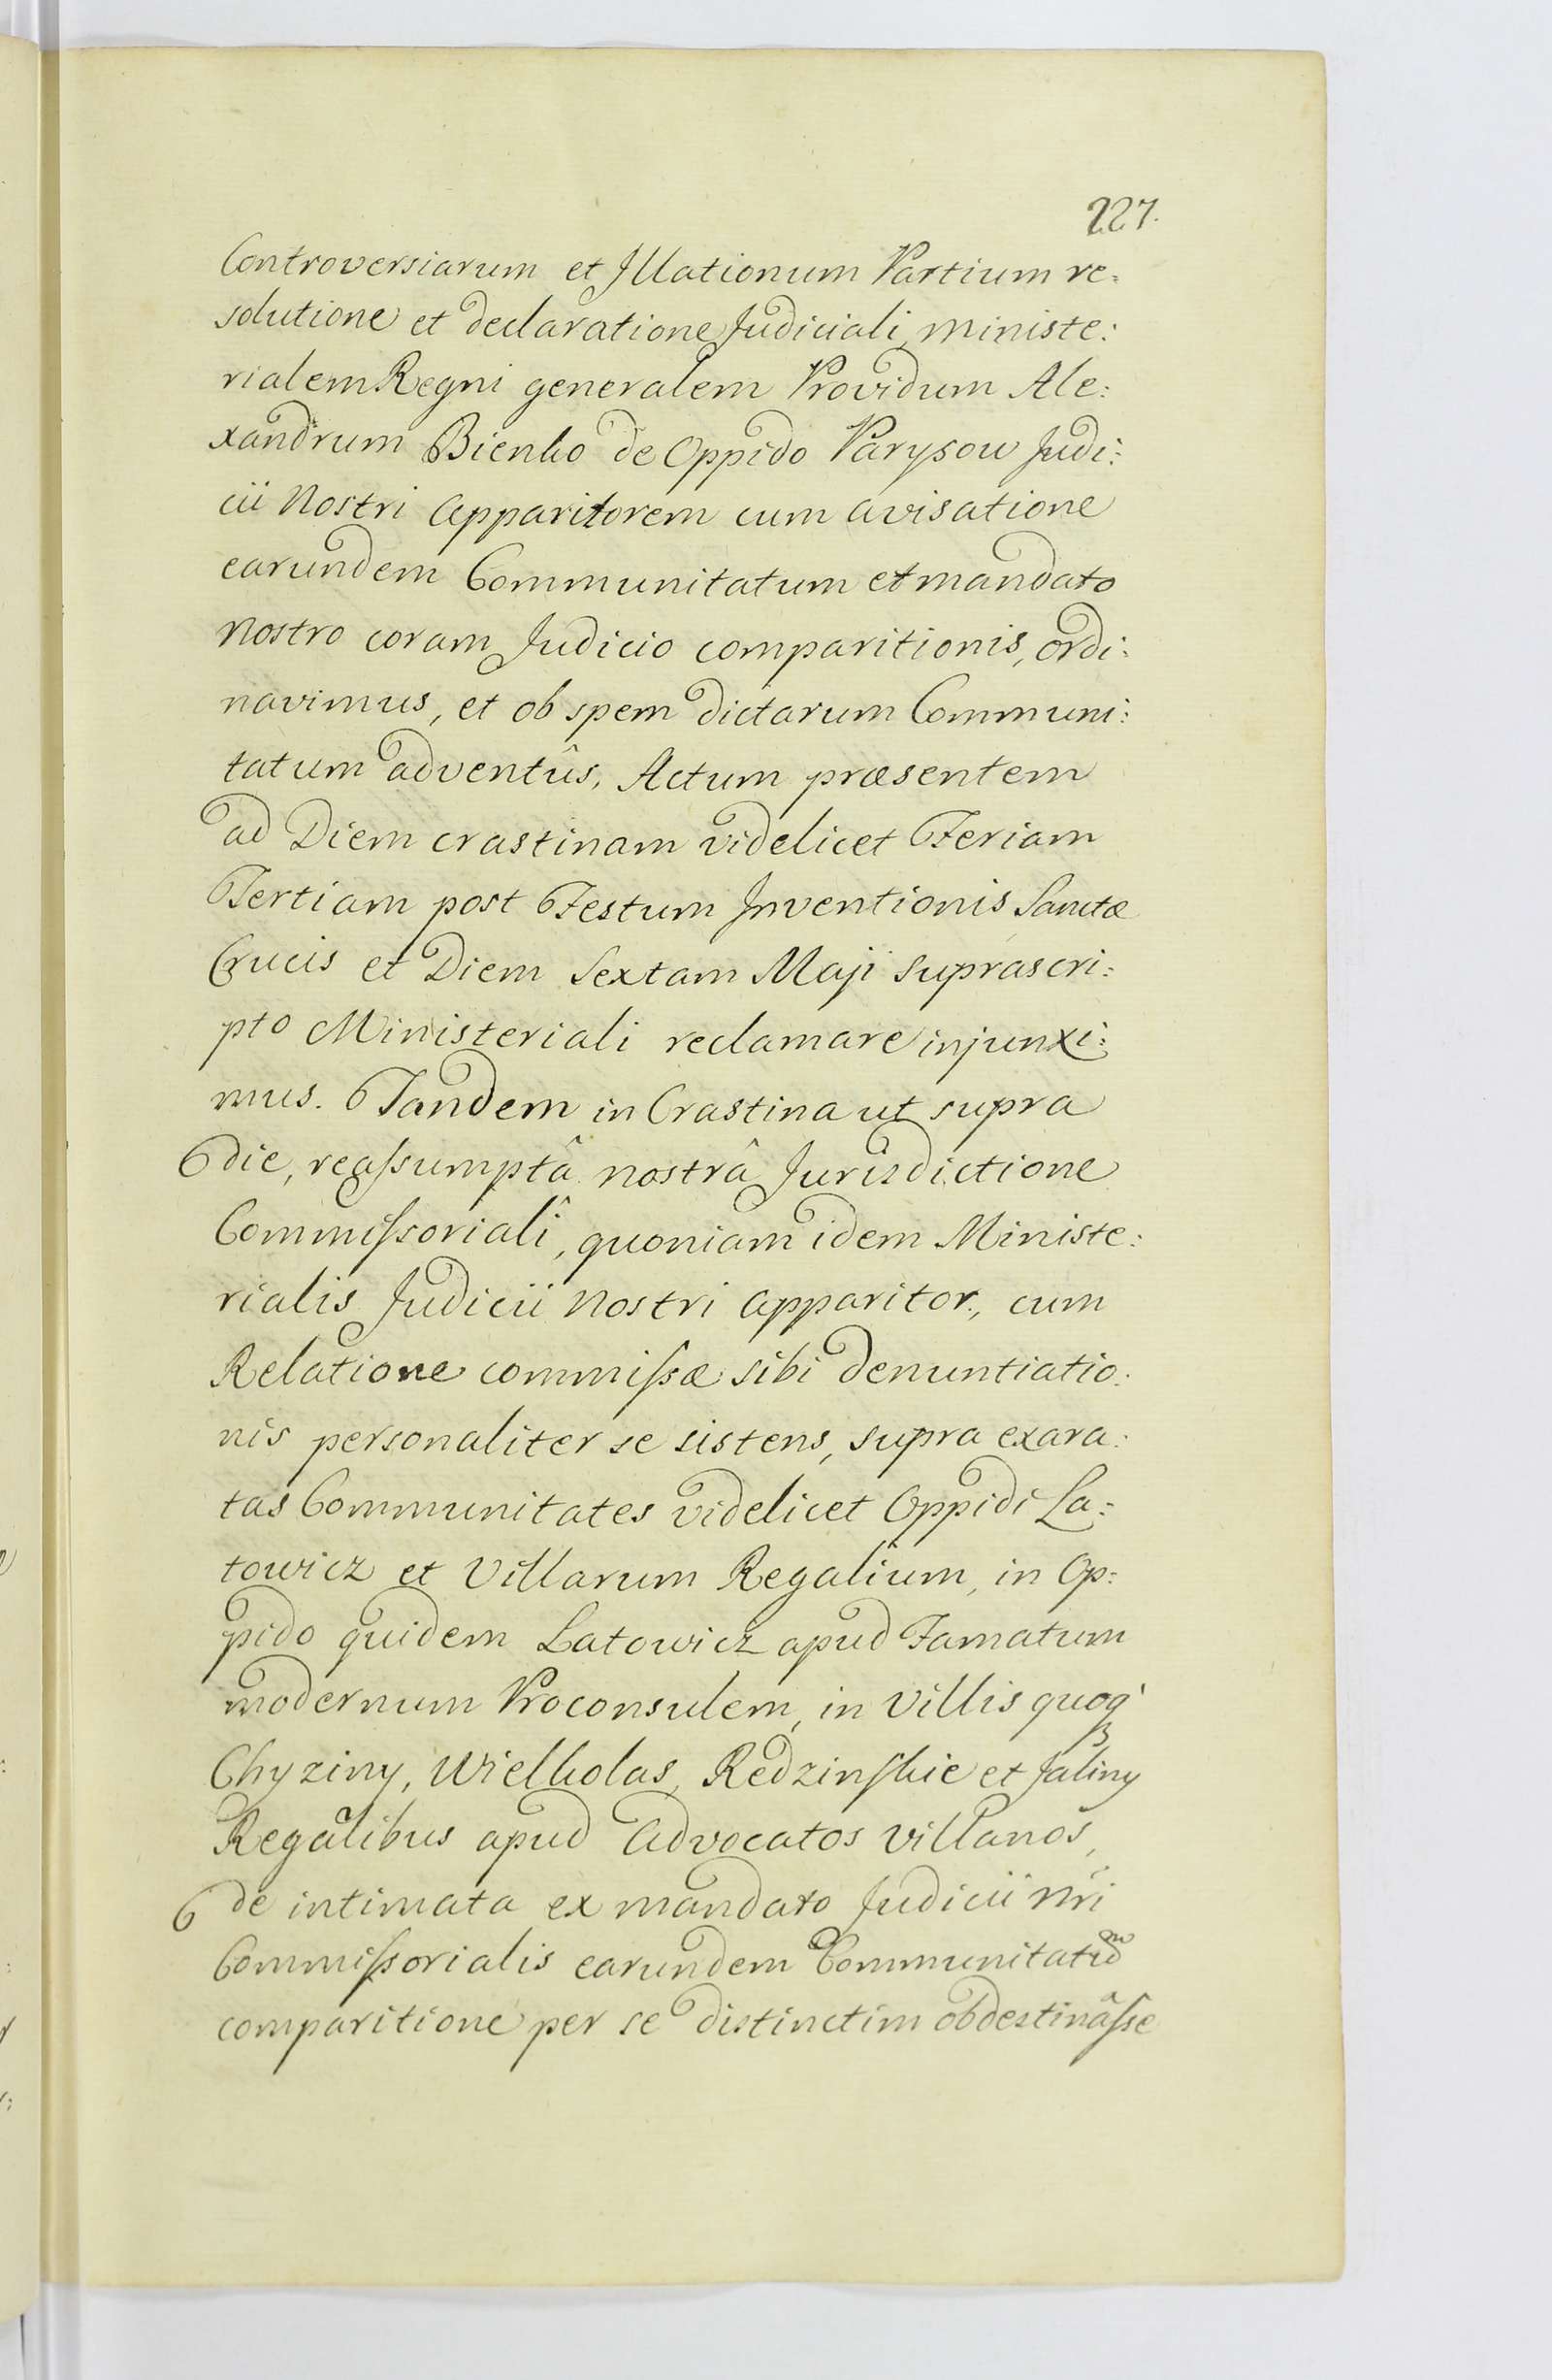 227.
Controversiarum et Illationum Partium re:
solutione et declaratione Judiciali, ministe:
rialem Regni generalem Providum Ale:
xandrum Bienko de Oppido Parysow Judi:
cii Nostri Apparitorem cum avisatione
earundem Communitatum et mandato
Nostro coram Judicio comparitionis, ordi:
navimus, et ob spem dictarum Communi:
tatum adventûs, Actum præsentem
ad Diem crastinam videlicet Feriam
Tertiam post Festum Inventionis Sanctæ
Crucis et Diem Sextam Maji suprascri:
pto Ministeriali reclamare injunxi:
mus. Tandem in Crastina ut supra
die, reaſsumptâ nostrâ Jurisdictione
Commiſsorialî, quoniam idem Ministe:
rialis Judicii Nostri Apparitor, cum
Relatione commiſsæ sibi denuntiatio:
nis personaliter se sistens, supra exara:
tas Communitates videlicet Oppidi La:
towicz et Villarum Regalium, in Op:
pido quidem Latowicz apud Famatum
modernum Proconsulem, in Villis quoq
Chyziny, Wielkolas, Redzinſkie et Jaliny
Regalibus apud Advocatos villanos,
de intimata ex mandato Judicii Nri
Commiſsorialis earundem Communitatũ
comparitione per se distinctim obdestinâſse